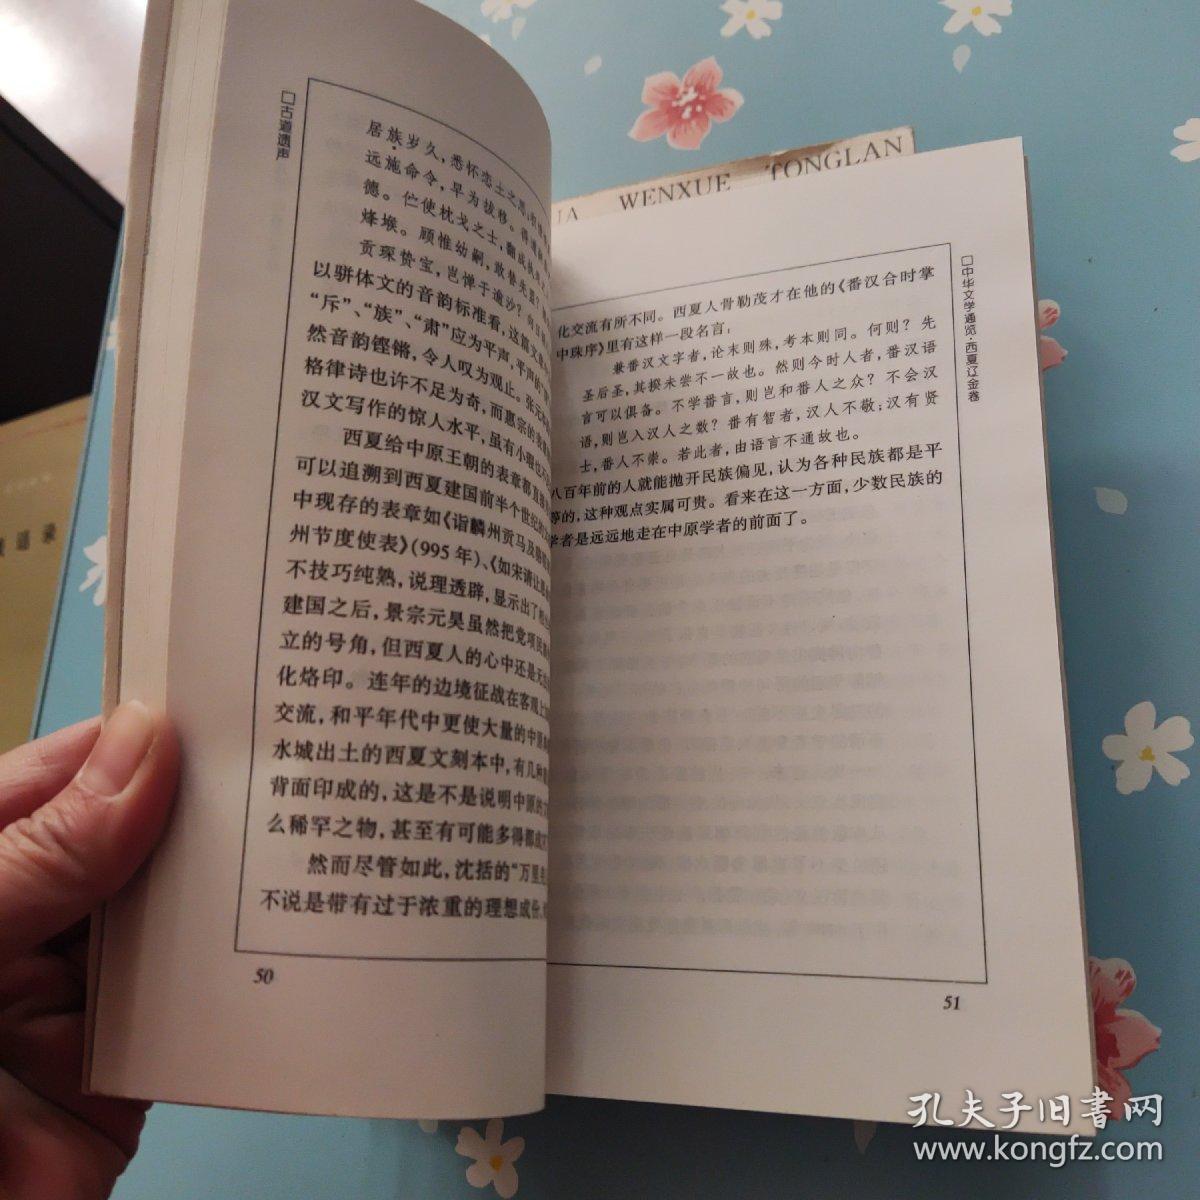 □古道遗声
居族岁久，悉怀恋土之思；
远施命令，早为拔移。得遵
德。伫使枕戈之士，翻成执
烽堠。顾惟幼嗣，敢替先盟？
贡琛贽宝，岂惮于逾沙？
以骈体文的音韵标准看，这篇文
“斥”、“族”、“肃”应为平声，
然音韵铿锵，令人叹为观止。张元
格律诗也许不足为奇，而惠宗的表章
汉文写作的惊人水平，虽有小骚也不
西夏给中原王朝的表章都
可以追溯到西夏建国前半个世纪
中现存的表章如《诣麟州贡马及
州节度使表》(995年)、《如宋请让
不技巧纯熟，说理透辟，显示出了相
建国之后，景宗元昊虽然把党项民
立的号角，但西夏人的心中还是无
化烙印。连年的边境征战在客观上
交流，和平年代中更使大量的中原
水城出土的西夏文刻本中，有几种
背面印成的，这是不是说明中原的
么稀罕之物，甚至有可能多得都成
然而尽管如此，沈括的“万里
不说是带有过于浓重的理想成份，
50
HUA WENXUE TONGLAN
□中华文学通览·西夏辽金卷
化交流有所不同。西夏人骨勒茂才在他的《番汉合时掌
中珠序》里有这样一段名言：
兼番汉文字者，论末则殊，考本则同。何则？先
圣后圣，其揆未尝不一故也。然则今时人者，番汉语
言可以俱备。不学番言，则岂和番人之众？不会汉
语，则岂入汉人之数？番有智者，汉人不敬；汉有贤
士，番人不崇。若此者，由语言不通故也。
八百年前的人就能抛开民族偏见，认为各种民族都是平
等的，这种观点实属可贵。看来在这一方面，少数民族的
学者是远远地走在中原学者的前面了。
51
孔夫子旧书网
www.kongfz.com